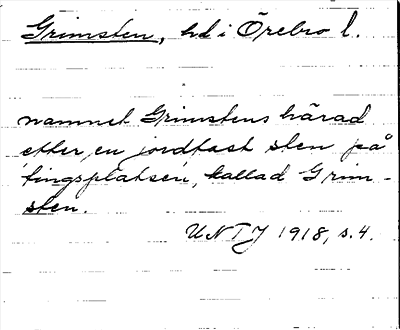 Grimsten, hd i Örebro l.
namnet Grimstens härad
efter en jordfast sten på
tingsplatsen, kallad Grim-
sten.
UNTJ 1918, s. 4.